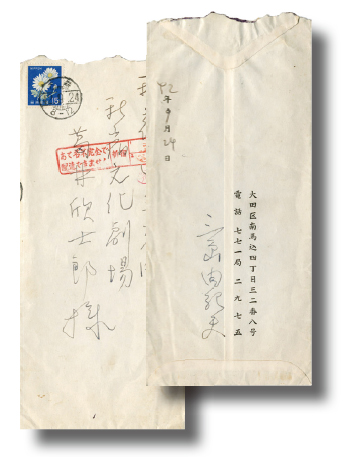 新宿文化劇場
葛井欣士郎様
15
24
8-12
あて名不完全で
配達できません
42年9月24日
大田区南馬込四丁目三二番八号
電話 七七一局 二九七五
三島由紀夫